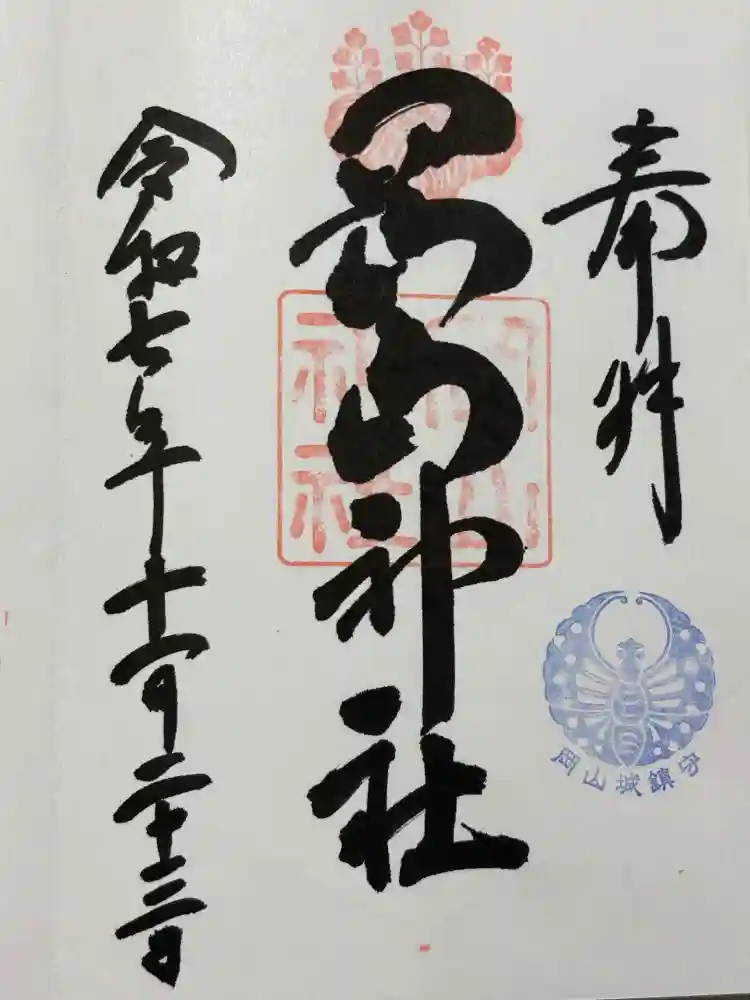 奉拝
岡山城鎮守
岡山神社
岡山神社
令和七年十一月二十三日